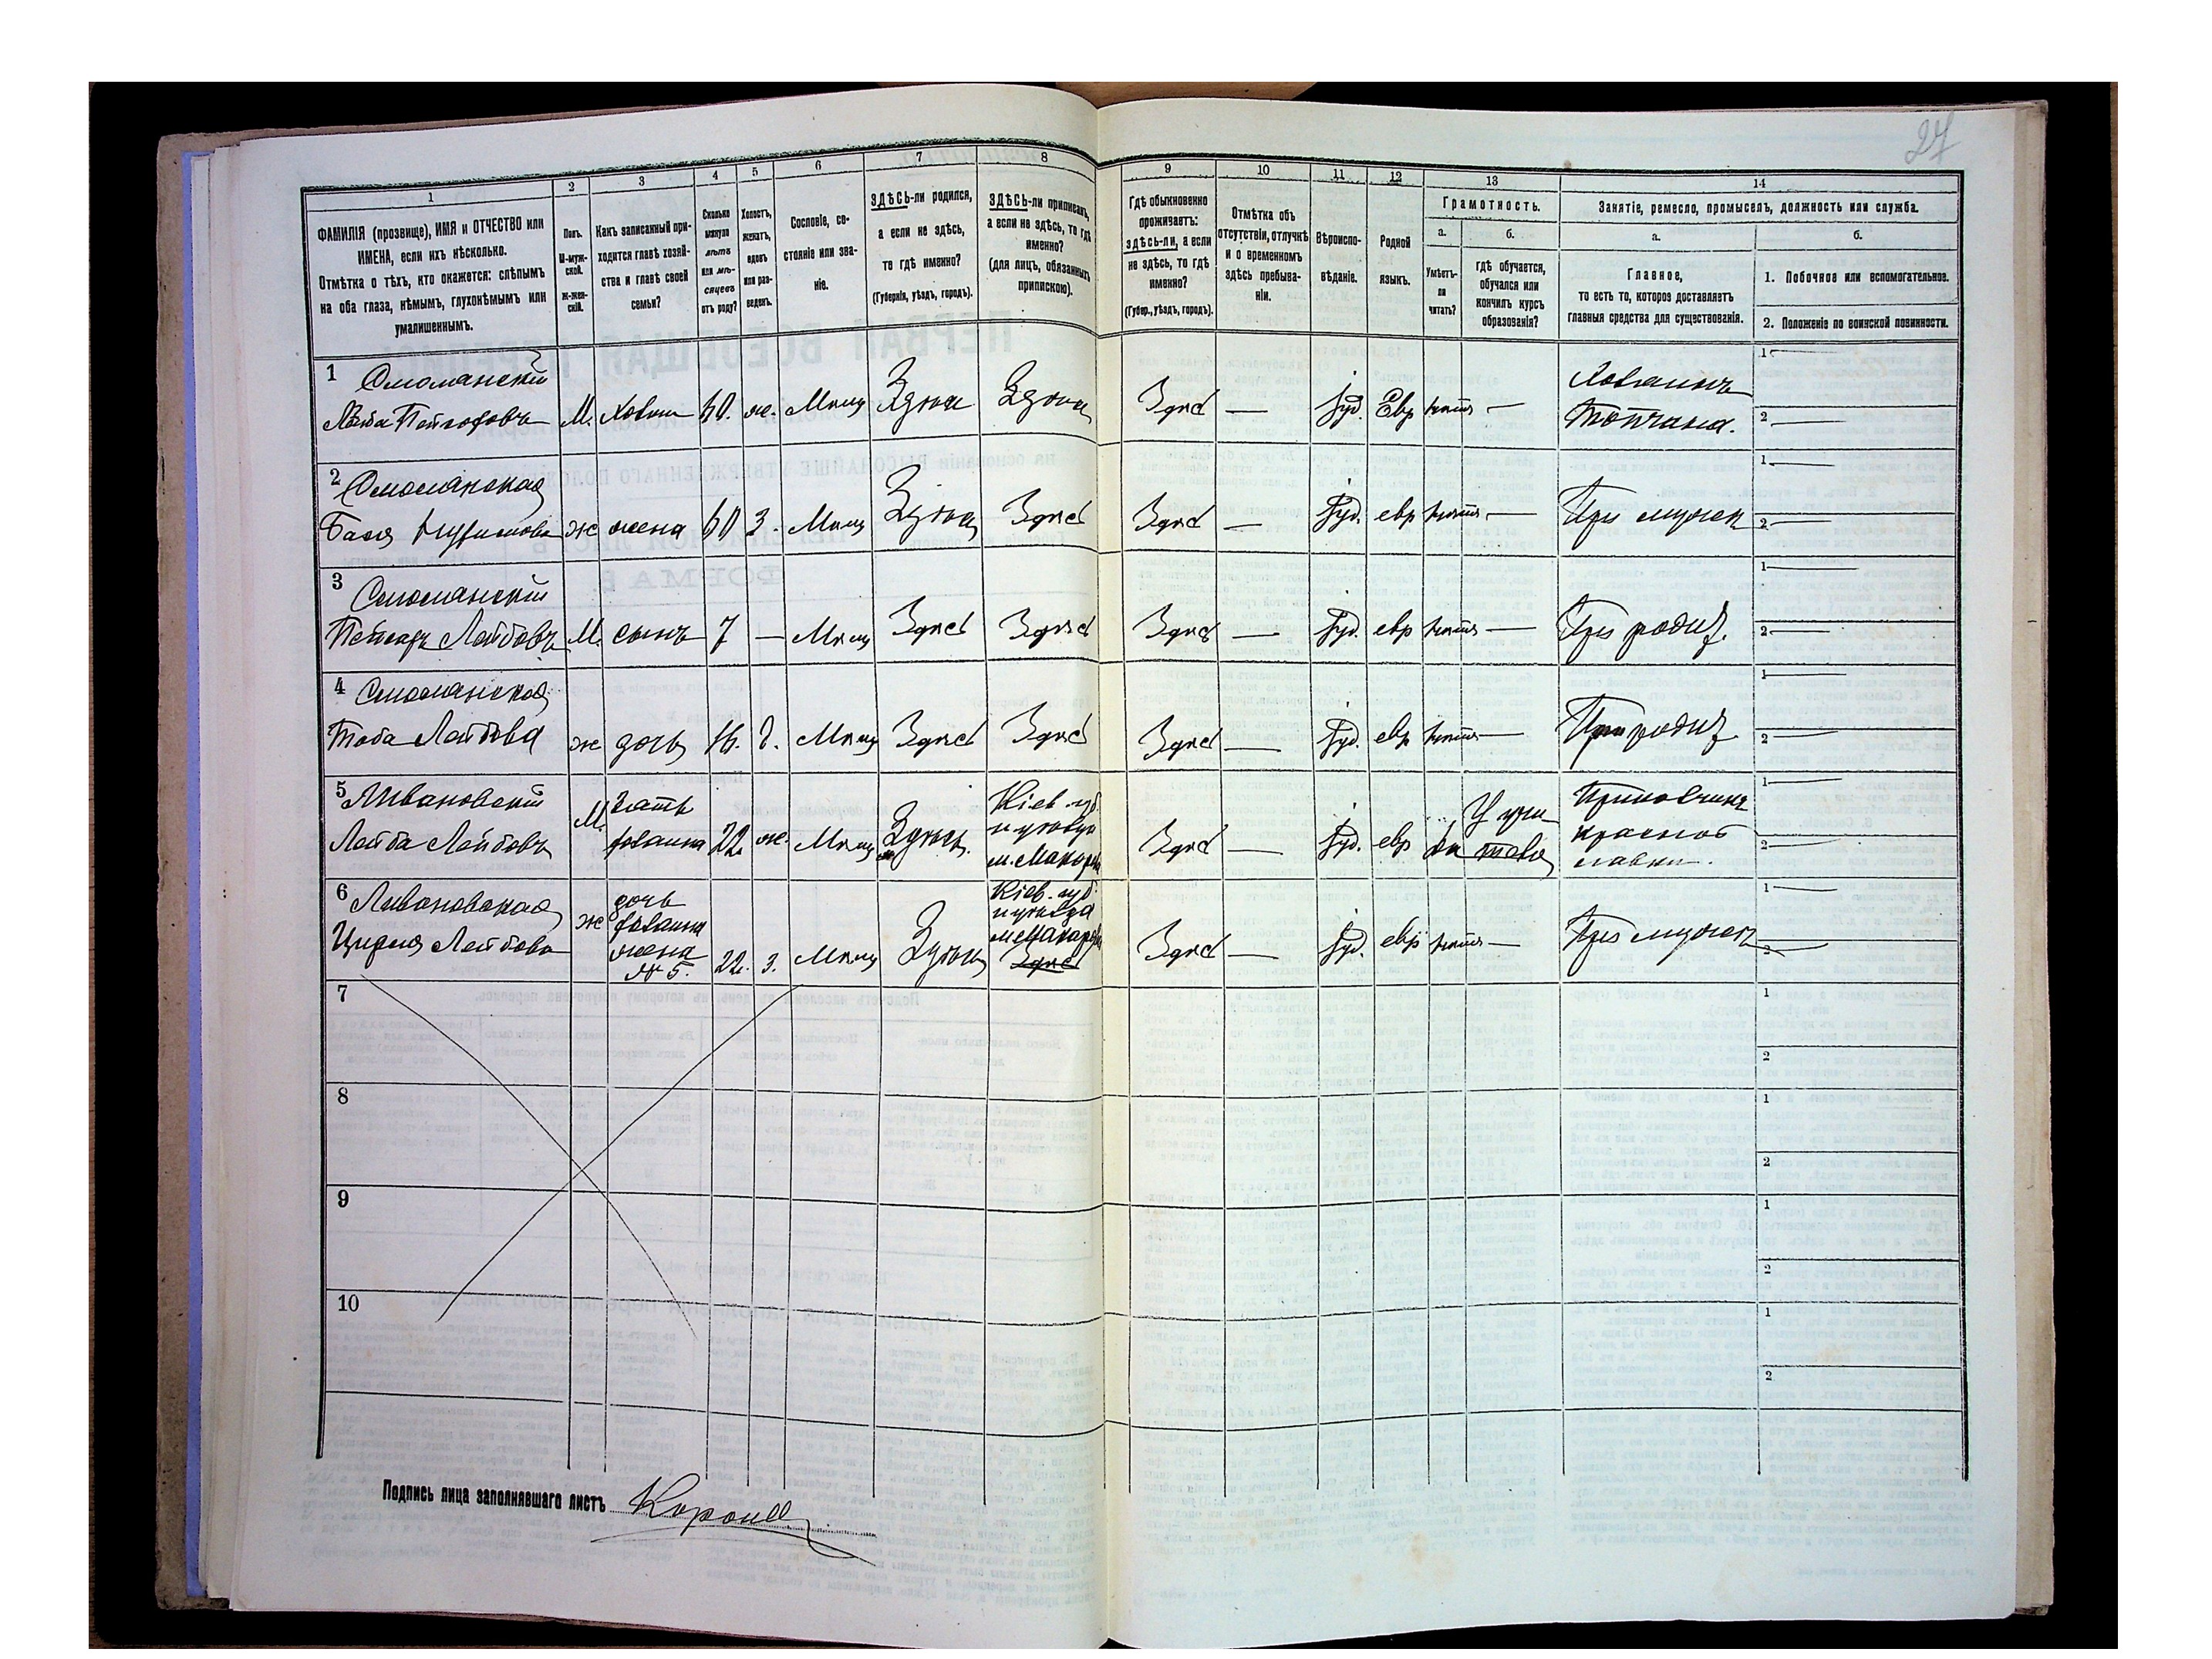 27
1 2 3 4 5 6 7 8 9 10 11 12 13 14
ФАМИЛІЯ (прозвище), ИМЯ и ОТЧЕСТВО или
ИМЕНА, если ихъ нѣсколько.
Отмѣтка о тѣхъ, кто окажется: слѣпымъ
на оба глаза, нѣмымъ, глухонѣмымъ или
умалишеннымъ.
Полъ.
М-муж-
ской.
Ж-жен-
скій.
Какъ записанный при-
ходится главѣ хозяй-
ства и главѣ своей
семьи?
Сколько
минуло
лѣтъ
или мѣ-
сяцевъ
отъ роду?
Холостъ,
женатъ,
вдовъ
или раз-
веденъ.
Сословіе, со-
стояніе или зва-
ніе.
ЗДѢСЬ-ли родился,
а если не здѣсь,
то гдѣ именно?
(Губернія, уѣздъ, городъ).
ЗДѢСЬ-ли приписанъ,
а если не здѣсь, то гдѣ
именно?
(для лицъ, обязанныхъ
припискою).
Гдѣ обыкновенно
проживаетъ:
здѣсь-ли, а если
не здѣсь, то гдѣ
именно?
(Губер., уѣздъ, городъ).
Отмѣтка объ
отсутствіи, отлучкѣ
и о временномъ
здѣсь пребыва-
ніи.
Вѣроиспо-
вѣданіе.
Родной
языкъ.
Грамотность.
а.
Умѣетъ-
ли
читать?
б.
гдѣ обучается,
обучался или
кончилъ курсъ
образованія?
Занятіе, ремесло, промыселъ, должность или служба.
а.
Главное,
то есть то, которое доставляетъ
главныя средства для существованія.
б.
1. Побочное или вспомогательное.
2. Положеніе по воинской повинности.
1 Смолянскій
М. Хозяин 60. ж. Мѣщ Здѣсь Здѣсь Здѣсь — Іуд. Евр нѣтъ —
1 —
2 —
2 Смолянская
Бася ж жена 60 З. Мѣщ Здѣсь Здѣсь Здѣсь — Іуд. евр нѣтъ — При мужѣ
1 —
2 —
3 Смолянскій
Лейбовъ М. сынъ 7 — Мѣщ Здѣсь Здѣсь Здѣсь — Іуд. евр нѣтъ — При родит.
1 —
2 —
4 Смолянская
Тоба Лейбова ж дочь 16. д. Мѣщ Здѣсь Здѣсь Здѣсь — Іуд. евр нѣтъ — При родит.
1 —
2 —
5 Ливановскій
Лейба Лейбовъ М. Зять хозяина 22 ж. Мѣщ Здѣсь.
Кіев. губ.
и уѣзда
м. Макаров
Здѣсь — Іуд. евр да У учи-
теля
Приказчикъ
красной
лавки.
1 —
2 —
6 Ливановская
Лейбова ж
дочь
хозяина
жена
№ 5.
22. З. Мѣщ Здѣсь
Кіев. губ
и уѣзда
м. Макаров
Здѣсь
Здѣсь — Іуд. евр нѣтъ — При мужѣ
1 —
2 —
7
1
2
8
1
2
9
1
2
10
1
2
Подпись лица заполнявшаго листъ